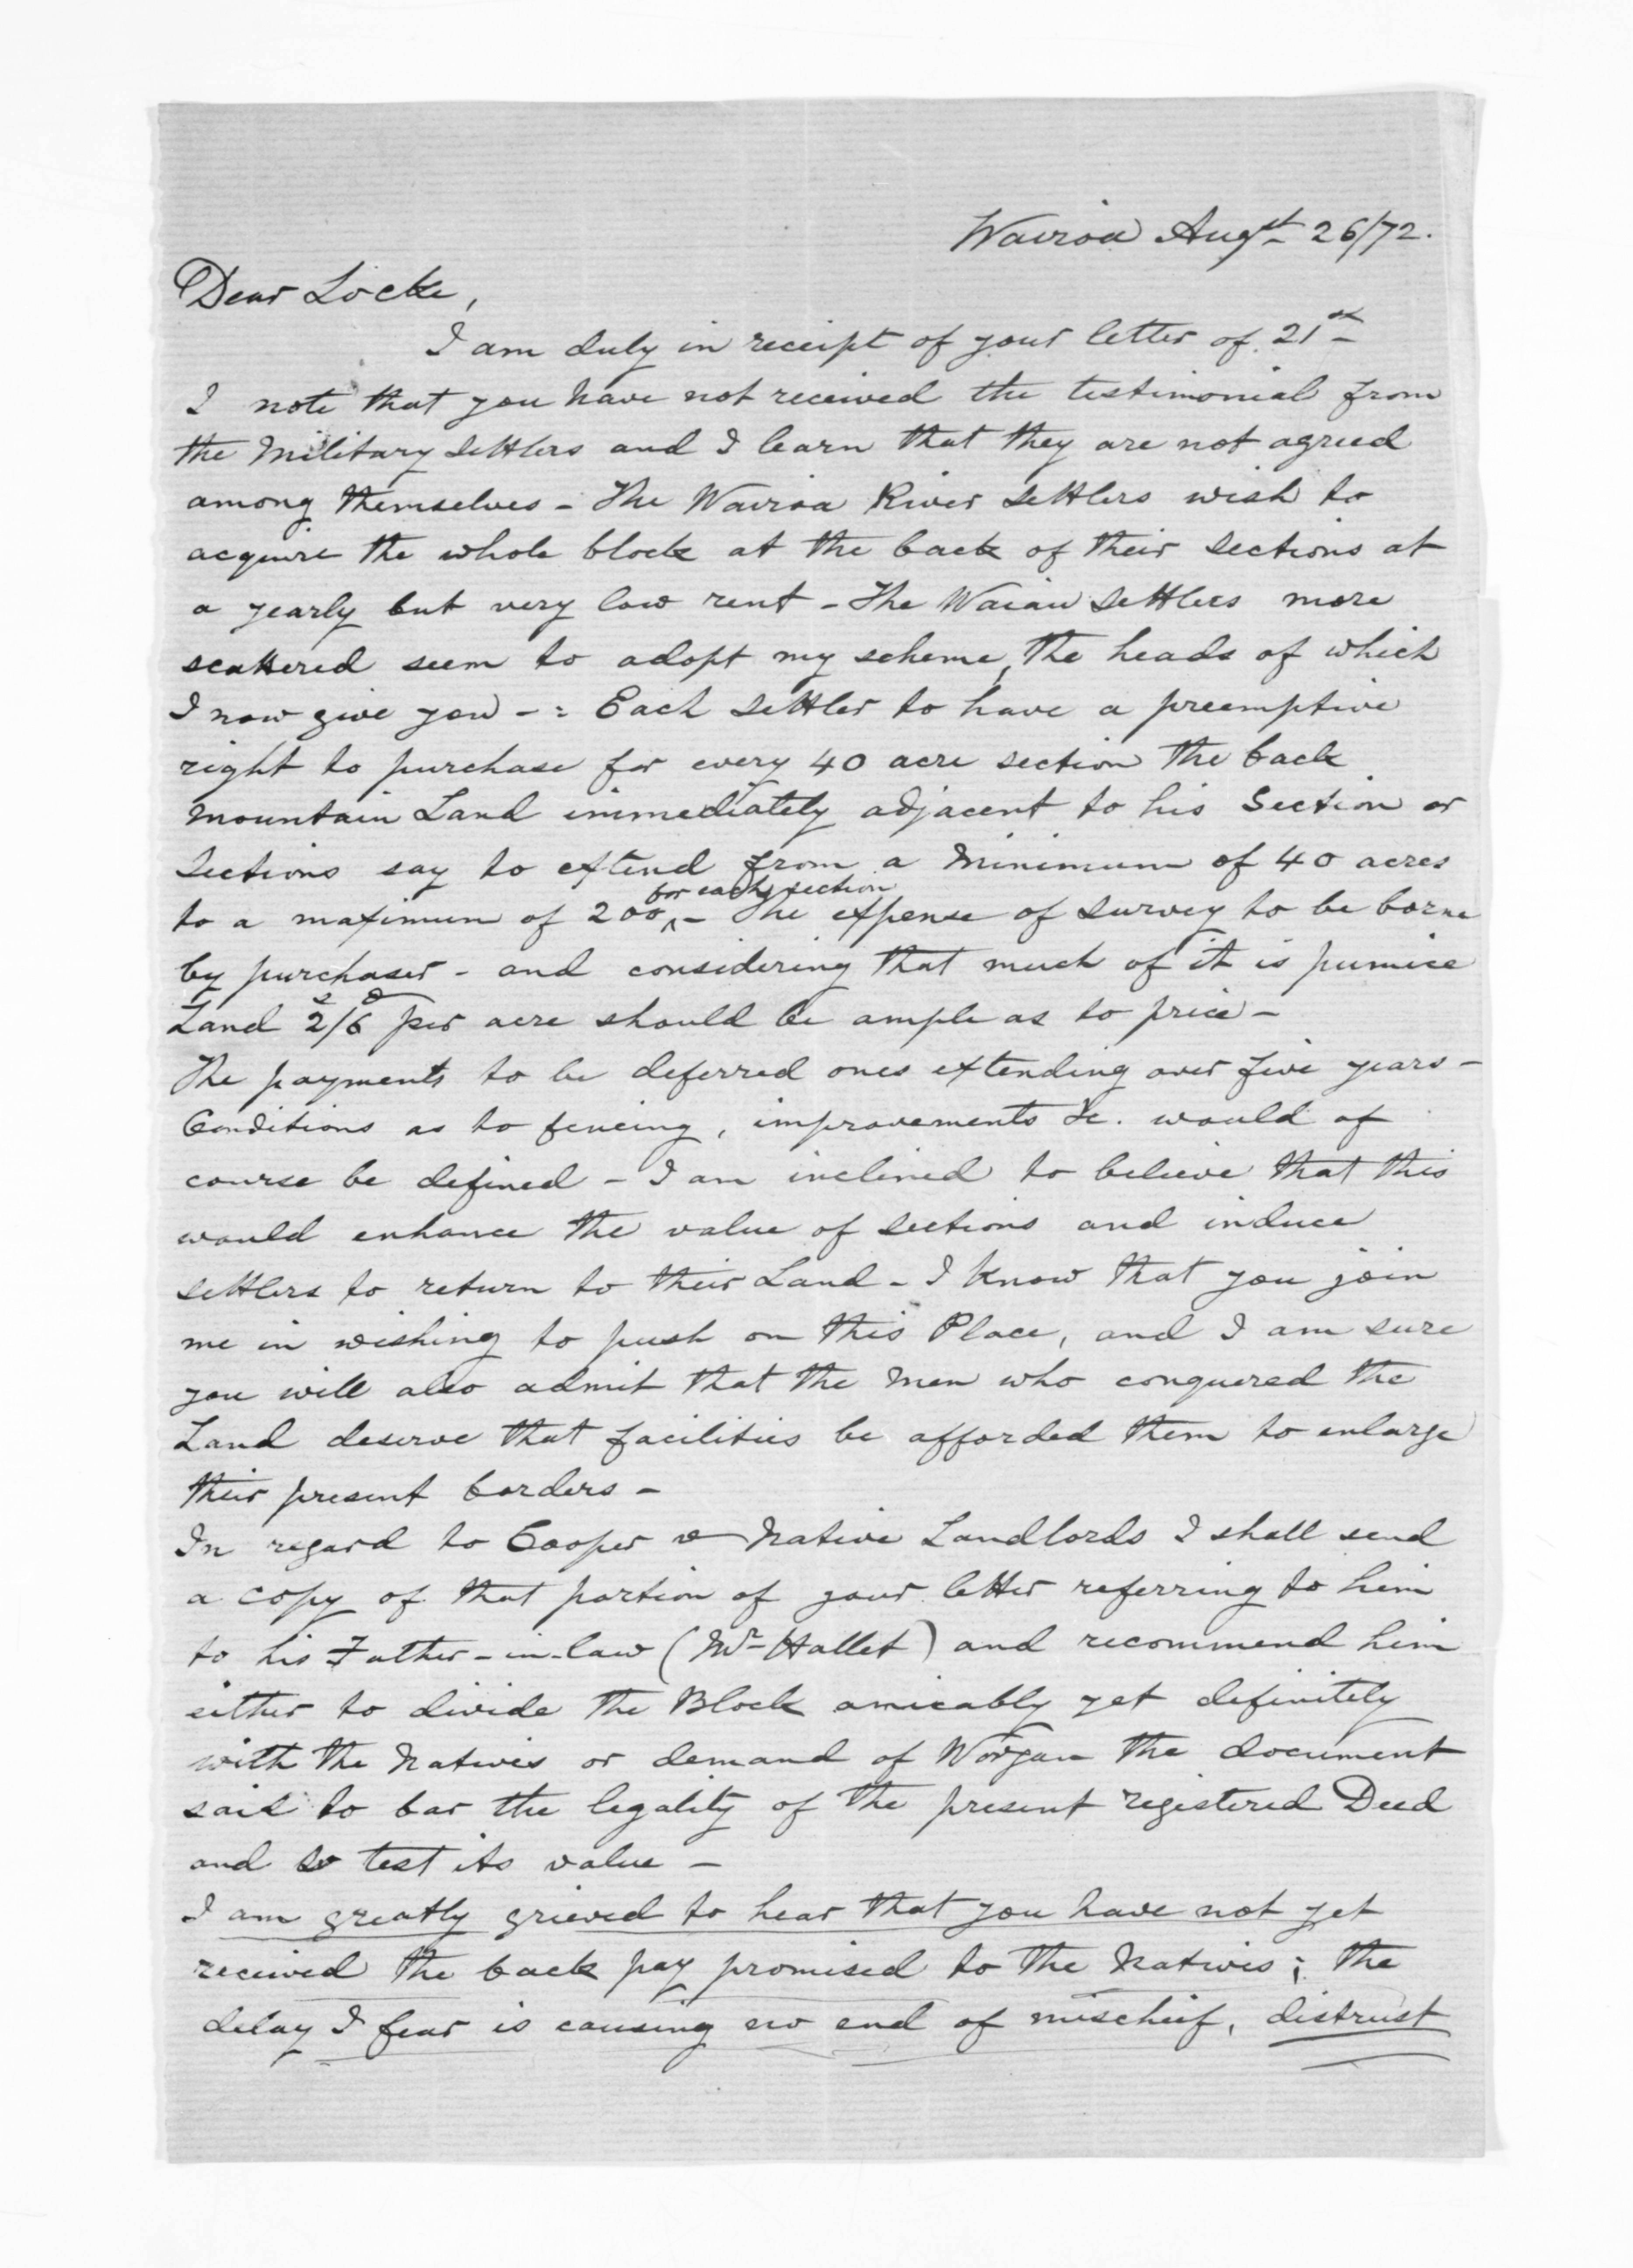 Wairoa Augst 26/72.
Dear Locke,
I am duly in receipt of your letter of 21st
I note that you have not received the testimonial from
the Military Settlers and I learn that they are not agreed
among themselves - The Wairoa River Settlers wish to
acquire the whole block at the back of their Sections at
a yearly but very low rent - The Waiau Settlers more
scattered seem to adopt my scheme, the heads of which
I now give you - : Each Settler to have a preemptive
right to purchase for every 40 acre section the back
Mountain Land immediately adjacent to his Section or
Sections say to extend from a Minimum of 40 acres
for each section
to a maximum of 200 - The expense of Survey to be borne
by purchaser - and considering that much of it is pumice
Land 2s/6d per acre should be ample as to price -
The payments to be deferred ones extending over five years -
Conditions as to fencing, improvements &c. would of
course be defined - I am inclined to believe that this
would enhance the value of Sections and induce
Settlers to return to their Land - I know that you join
me in wishing to push on this Place, and I am sure
you will also admit that the Men who conquered the
Land deserve that facilities be afforded them to enlarge
their present borders -
In regard to Cooper & Native Landlords I shall send
a copy of that portion of your letter referring to him
to his Father-in-law (Mr Hallet) and recommend him
either to divide the Block amicably yet definitely
with the Natives or demand of Worgan the document
said to bar the legality of the present registered Deed
and so test its value -
I am greatly grieved to hear that you have not yet
received the back pay promised to the Natives; the
delay I fear is causing no end of mischief, distrust